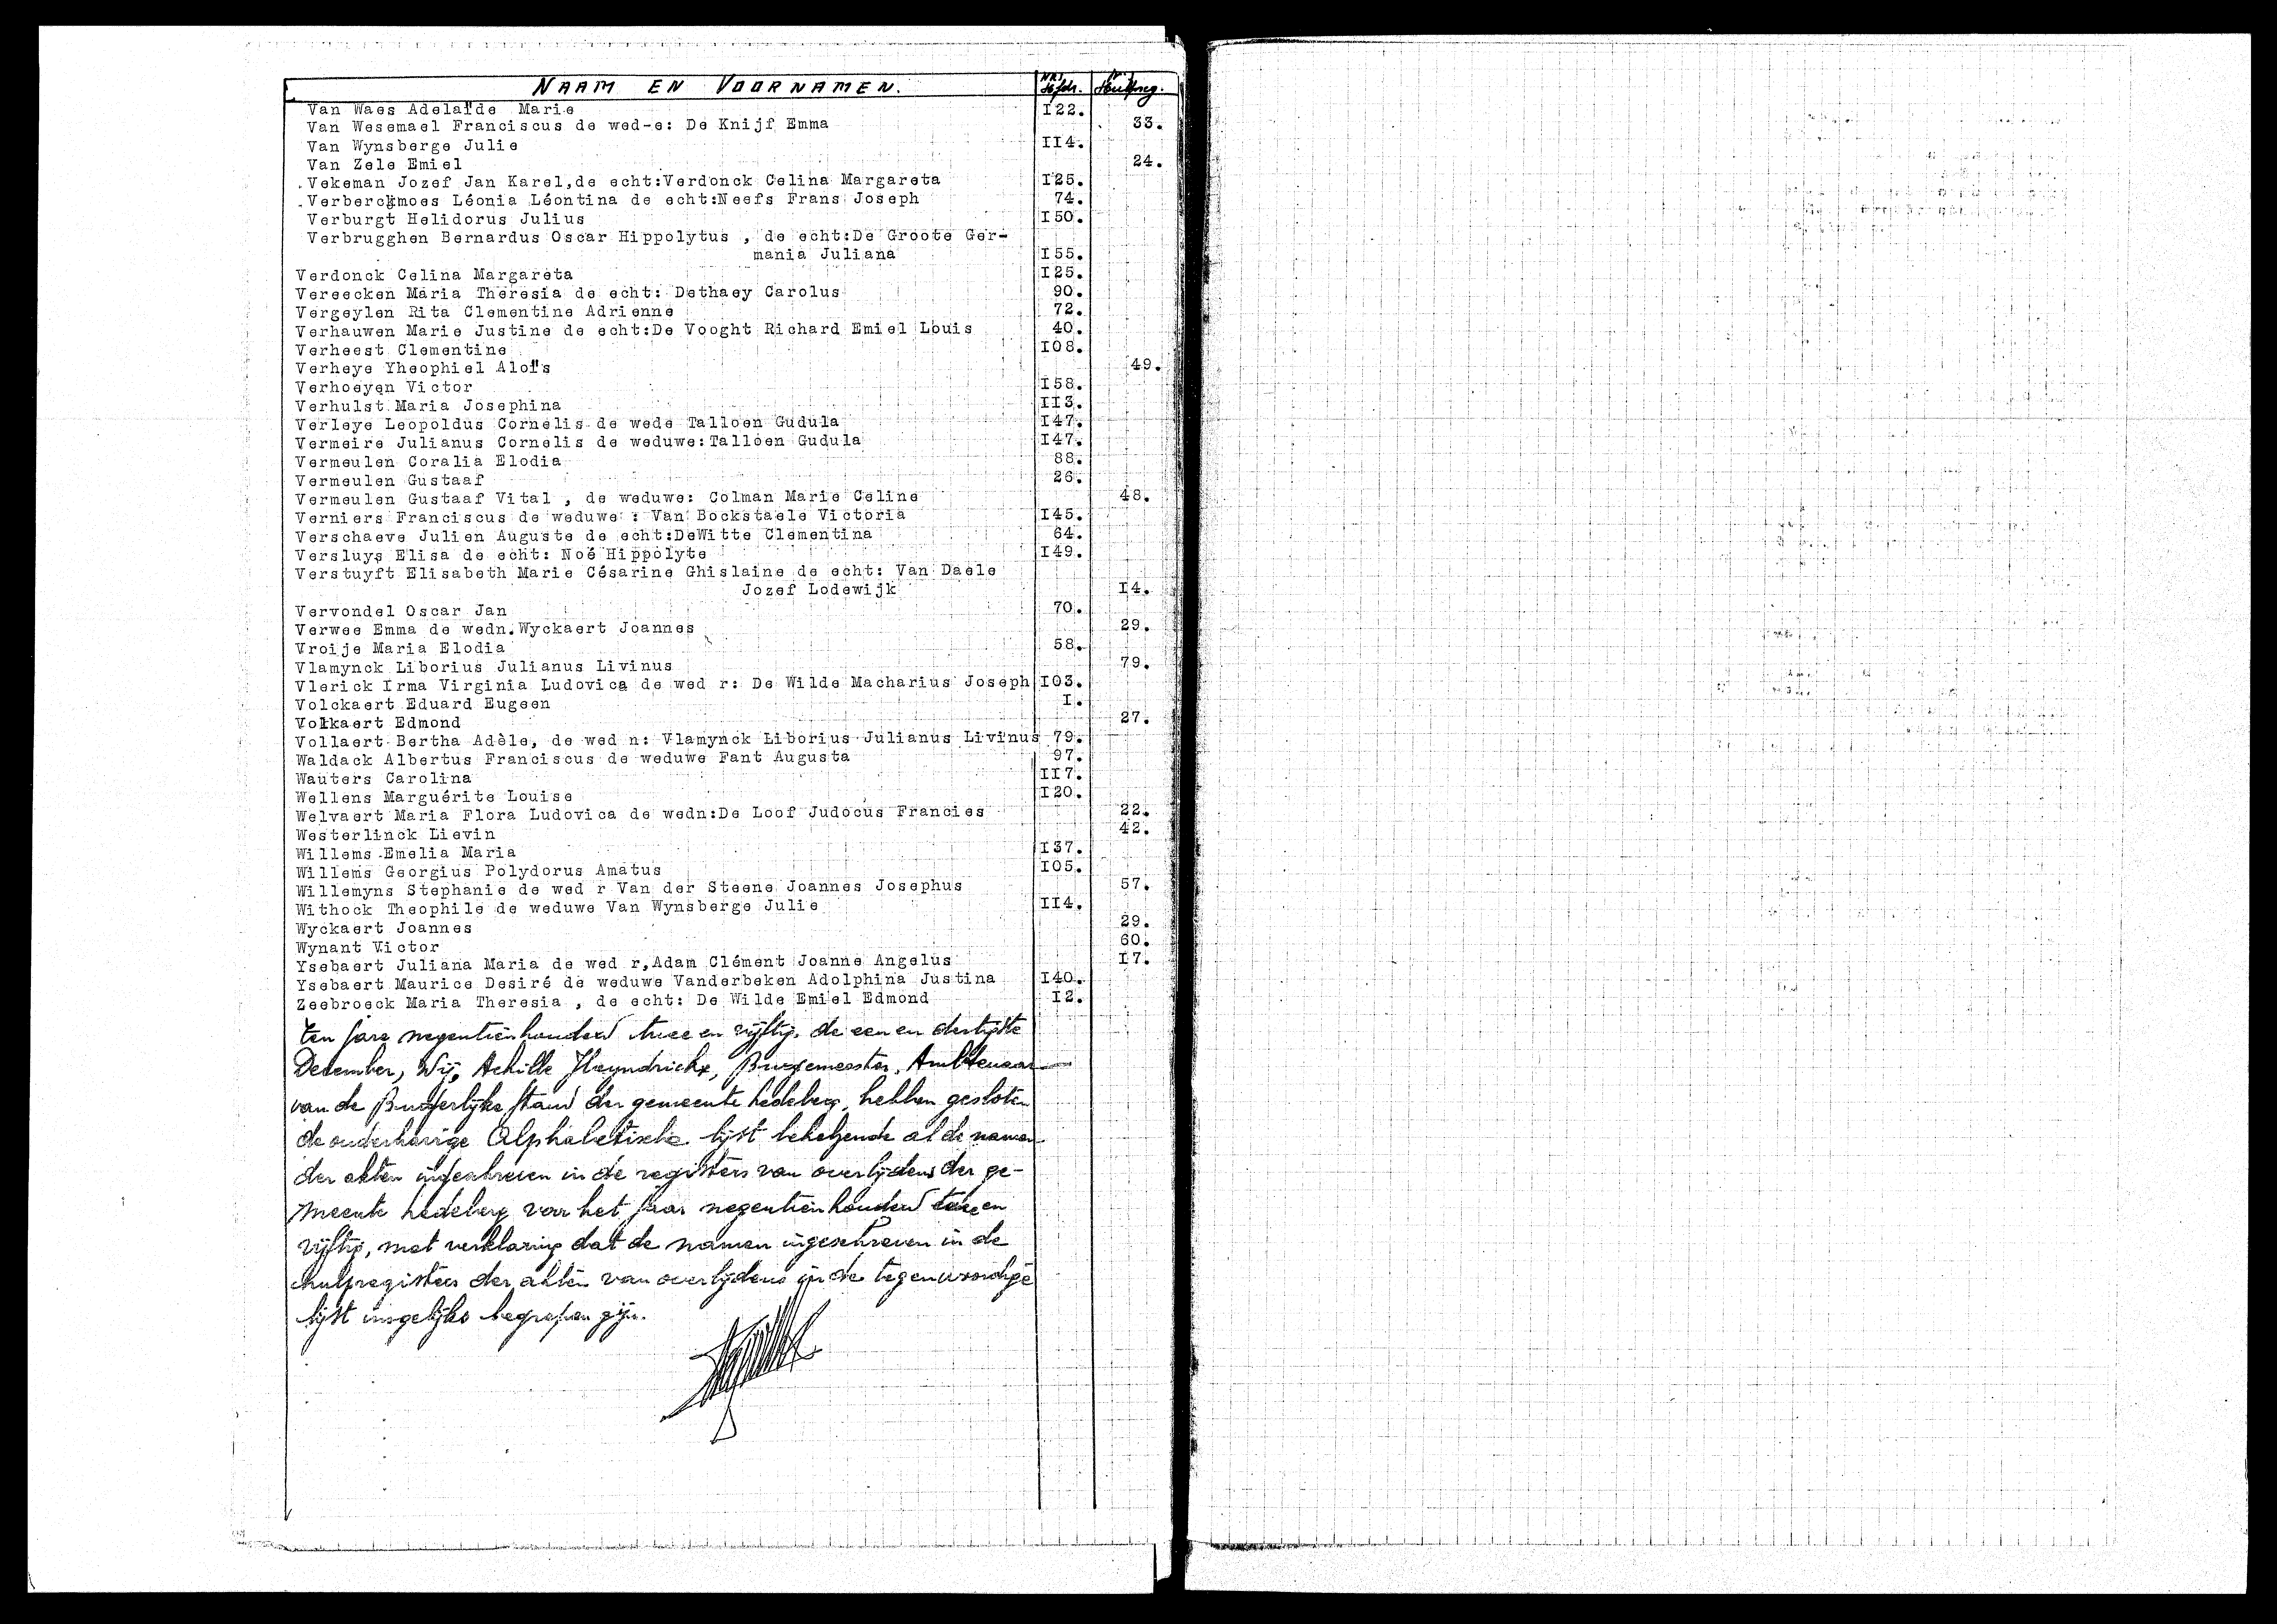 NAAM EN VOORNAMEN. NRS Hulpreg.
Van Waes Adelaïde Marie I22.
Van Wesemael Franciscus de wed-e: De Knijf Emma 33.
Van Wynsberge Julie II4.
Van Zele Emiel 24.
Vekeman Jozef Jan Karel,de echt:Verdonck Celina Margareta I25.
Verberckmoes Léonia Léontina de echt:Neefs Frans Joseph 74.
Verburgt Helidorus Julius I50.
Verbrugghen Bernardus Oscar Hippolytus , de echt:De Groote Ger-
mania Juliana I55.
Verdonck Celina Margareta I25.
Vereecken Maria Theresia de echt: Dethaey Carolus 90.
Vergeylen Rita Clementine Adrienne 72.
Verhauwen Marie Justine de echt:De Vooght Richard Emiel Louis 40.
Verheest Clementine I08.
Verheye Yheophiel Aloïs 49.
Verhoeyen Victor I58.
Verhulst Maria Josephina II3.
Verleye Leopoldus Cornelis de wede Talloen Gudula I47.
Vermeire Julianus Cornelis de weduwe:Talloen Gudula I47.
Vermeulen Coralia Elodia 88.
Vermeulen Gustaaf 26.
Vermeulen Gustaaf Vital , de weduwe: Colman Marie Celine 48.
Verniers Franciscus de weduwe : Van Bockstaele Victoria I45.
Verschaeve Julien Auguste de echt:DeWitte Clementina 64.
Versluys Elisa de echt: Noé Hippolyte I49.
Verstuyft Elisabeth Marie Césarine Ghislaine de echt: Van Daele
Jozef Lodewijk I4.
Vervondel Oscar Jan 70.
Verwee Emma de wedn.Wyckaert Joannes 29.
Vroije Maria Elodia 58.
Vlamynck Liborius Julianus Livinus 79.
Vlerick Irma Virginia Ludovica de wed r: De Wilde Macharius Joseph I03.
Volckaert Eduard Eugeen I.
Volkaert Edmond 27.
Vollaert Bertha Adèle, de wed n: Vlamynck Liborius Julianus Livinus 79.
Waldack Albertus Franciscus de weduwe Fant Augusta 97.
Wauters Carolina II7.
Wellens Marguérite Louise I20.
Welvaert Maria Flora Ludovica de wedn:De Loof Judocus Francies 22.
Westerlinck Lievin 42.
Willems Emelia Maria I37.
Willems Georgius Polydorus Amatus I05.
Willemyns Stephanie de wed r Van der Steene Joannes Josephus 57.
Withock Theophile de weduwe Van Wynsberge Julie II4.
Wyckaert Joannes 29.
Wynant Victor 60.
Ysebaert Juliana Maria de wed r,Adam Clément Joanne Angelus I7.
Ysebaert Maurice Desiré de weduwe Vanderbeken Adolphina Justina I40.
Zeebroeck Maria Theresia , de echt: De Wilde Emiel Edmond I2.
Ten jare negentienhonderd twee en vijftig, de een en dertigste
December, Wij, Achille Heyndrickx, Burgemeester, Ambtenaar
van de Burgerlijke stand der gemeente Ledeberg, hebben gesloten
de onderhavige Alphabetische lijst behelzende al de namen
der akten ingeschreven in de registers van overlijdens der ge-
meente Ledeberg voor het jaar negentienhonderd twee en
vijftig, met verklaring dat de namen ingeschreven in de
hulpregisters der akten van overlijdens in de tegenwoordige
lijst insgelijks begrepen zijn.